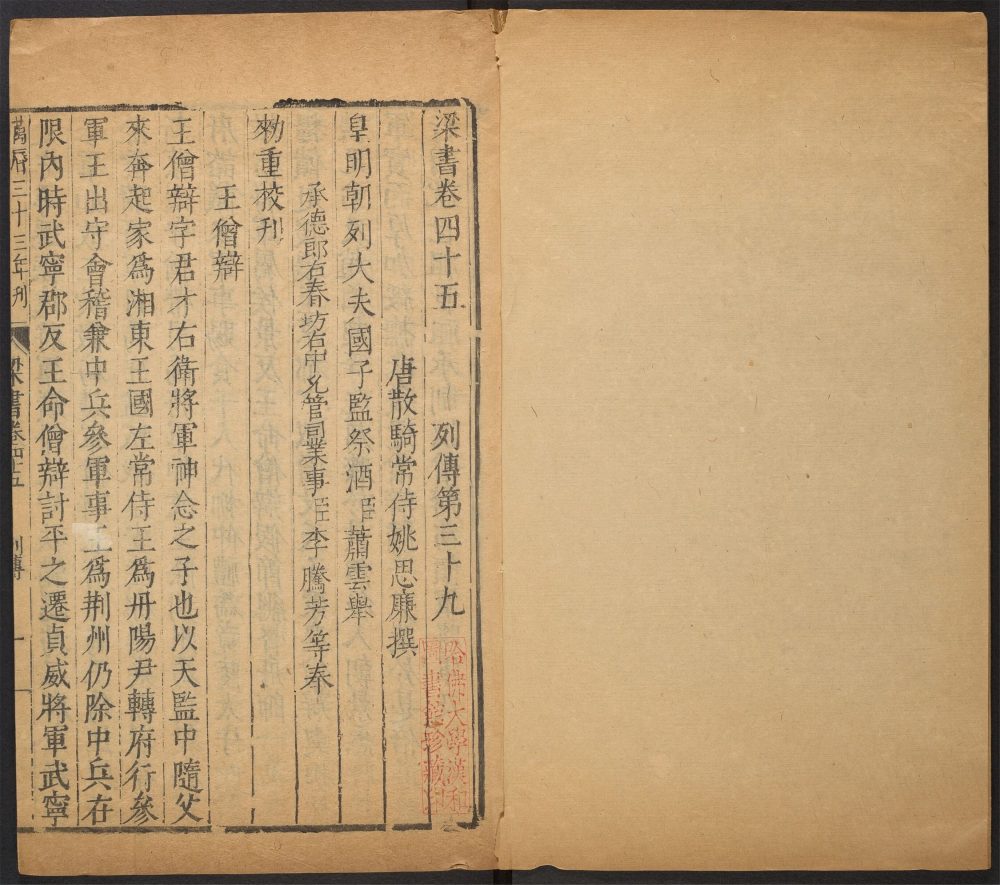 梁書卷四十五 列傳第三十九
唐散騎常侍姚思廉撰
皇明朝列大夫國子監祭酒臣蕭雲舉
承德郎右春坊右中允管司業事臣李騰芳等奉
勑重校刊
王僧辯
王僧辯字君才右衛將軍神念之子也以天監中隨父
來奔起家爲湘東王國左常侍王爲丹陽尹轉府行參
軍王出守會稽兼中兵參軍事王爲荆州仍除中兵在
限內時武寧郡反王命僧辯討平之遷貞威將軍武寧
萬曆三十三年刊 梁書卷四十五 列傳 一
哈佛大學漢和
圖書館珍藏印